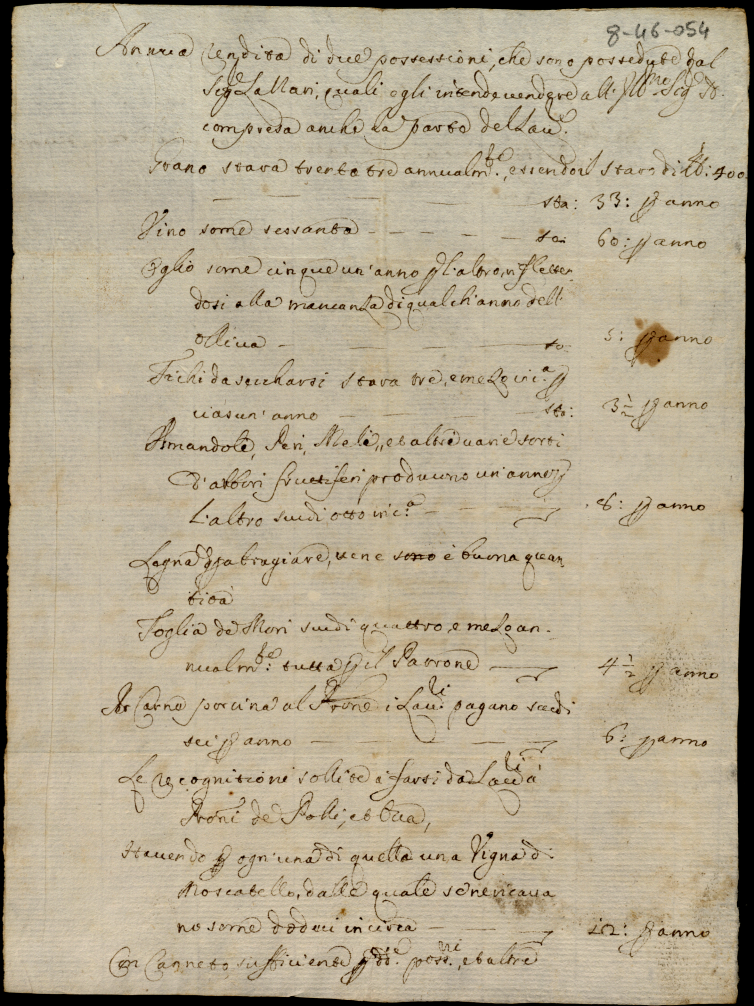 8-46-054
Annua rendita di due possessioni, che sono possedute dal
Sig.r Lattari, quali egli intende vendere all' Ill.mo Sig.
compresa anche la parte del Lau.e
Grano stara trenta tre annualm.te, essendo il staro di lb: 400
sta: 33: p anno
Vino some sessanta - - - - - so: 60: p anno
Oglio some cinque un' anno p l'altro, riflетten-
dosi alla mancanza di qualch'anno dell'
olliua - so: 5: p anno
Fichi da seccharsi stara tre, e mezo in c.a p
ciasun' anno - sta: 3 1/2 p anno
Amandole, Peri, Mele, et altre uarie sorti
d'albori fruttiferi producono un'anno p
l'altro scudi otto in c.a - - 8: p anno
Legna p abrugiare, ue ne sono è buona quan
tità
Foglia de Mori scudi quattro, e mezo an-
nualm.te tutta p il Patrone - 4 1/2 p anno
Per Carne porcina al Prone i Lau.ri pagano scudi
sei p anno - 6: p anno
Le recognitioni sollite à farsi da Lau.ri à
Proni de Polli, et Oua,
Hauendo p ogn'una di quelle una Vigna di
Moscatello, dalle quale se ne ricaua
no some dodeci in circa - 12: p anno
Con Canneto sufficiente p d.e poss.ni, et altre